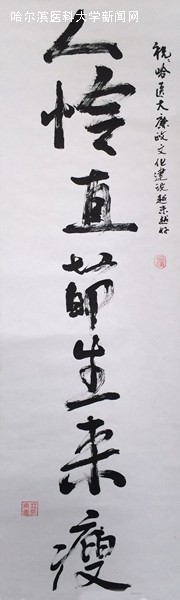 哈尔滨医科大学新闻网
祝哈医大廉政文化建设越来越好
人怜直节生来瘦